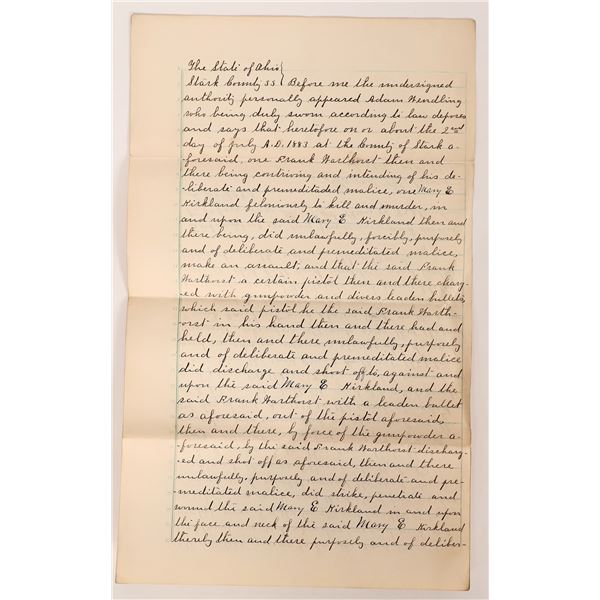 The State of Ohio}
Stark County SS } Before me the undersigned
authority personally appeared Adam Wendling
who being duly sworn according to law deposes
and says that heretofore on or about the 2nd
day of July A.D. 1883 at the County of Stark a-
foresaid, one Frank Warthorst then and
there being contriving and intending of his de-
liberate and premeditaded malice, one Mary E
Kirkland feloniously to kill and murder, in
and upon the said Mary E Kirkland then and
there being, did unlawfully, forcibly, purposely
and of deliberate and premeditated malice,
make an assault, and that the said Frank
Warthorst a certain pistol then and there charg-
ed with gunpowder and divers leaden bullets,
which said pistol he the said Frank Warth-
orst in his hand then and there had and
held, then and there unlawfully, purposely
and of deliberate and premeditated malice
did discharge and shoot off to, against and
upon the said Mary E Kirkland, and the
said Frank Warthorst with a leaden bullet
as aforesaid, out of the pistol aforesaid,
then and there, by force of the gunpowder a-
foresaid, by the said Frank Warthorst discharg-
ed and shot off as aforesaid, then and there
unlawfully, purposely and of deliberate and pre-
meditated malice, did strike, penetrate and
wound the said Mary E Kirkland in and upon
the face and neck of the said Mary E Kirkland
thereby then and there purposely and of deliber-